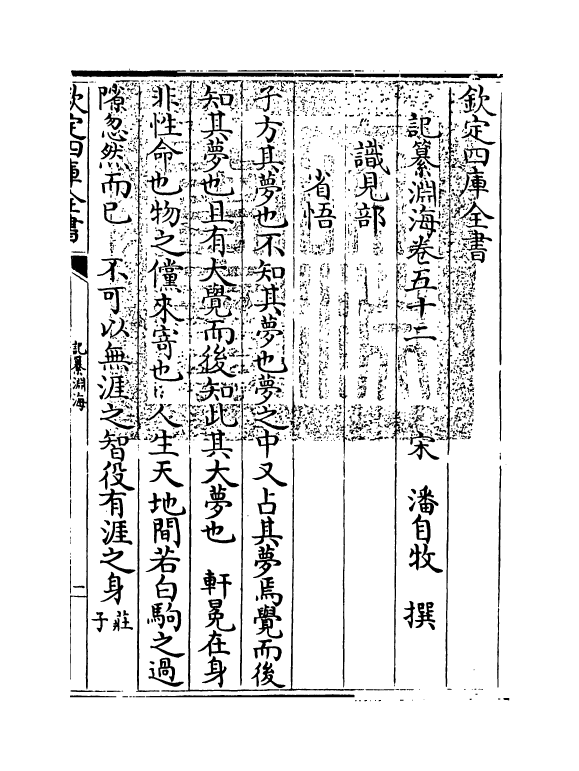 欽定四庫全書
記纂淵海卷五十二 宋 潘自牧 撰
識見部
省悟
子方其夢也不知其夢也夢之中又占其夢焉覺而後
知其夢也且有大覺而後知此其大夢也 軒冕在身
非性命也物之儻來寄也 人生天地間若白駒之過
隙忽然而已 不可以無涯之智役有涯之身莊子
欽定四庫全書
記纂淵海
一